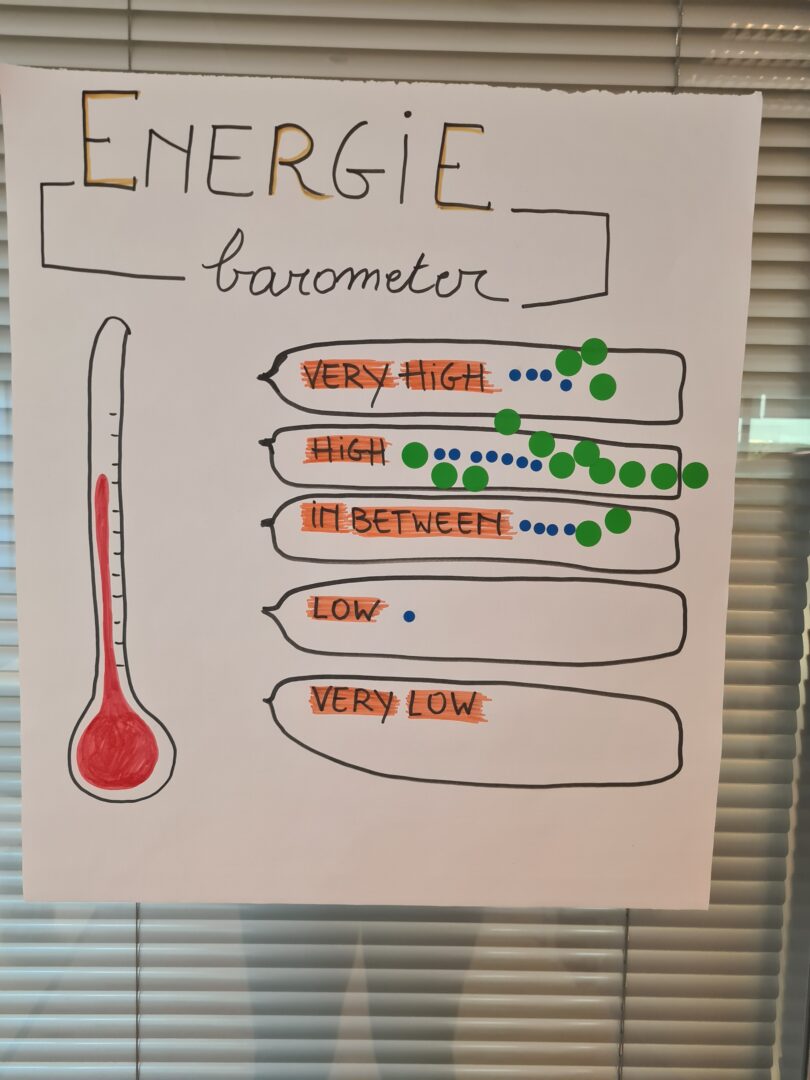 ENERGiE
barometer
VERY HiGH
HiGH
iN BETWEEN
LOW
VERY LOW